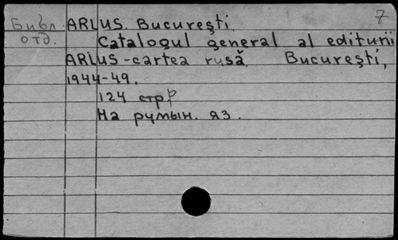 Библ. ARLUS. Bucureşti. 7
отд. Catalogul general al editurii
ARLUS-cartea rusă. Bucureşti,
1944-49.
124 стр
На румын. яз.